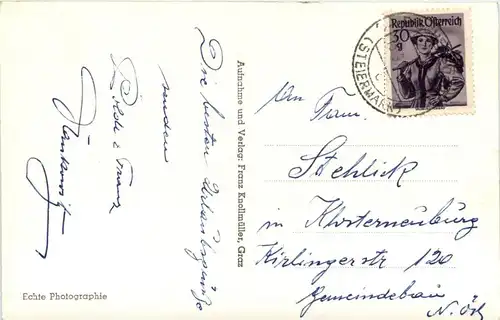 Die besten Urlaubsgrüße
senden
Franz
Aufnahme und Verlag: Franz Knollmüller, Graz
Echte Photographie
Republik Österreich
30
g
(STEIERMARK
An Fam.
Stehlick
in Klosterneuburg
Kirlingerstr 120
Gemeindebau
N. Öst